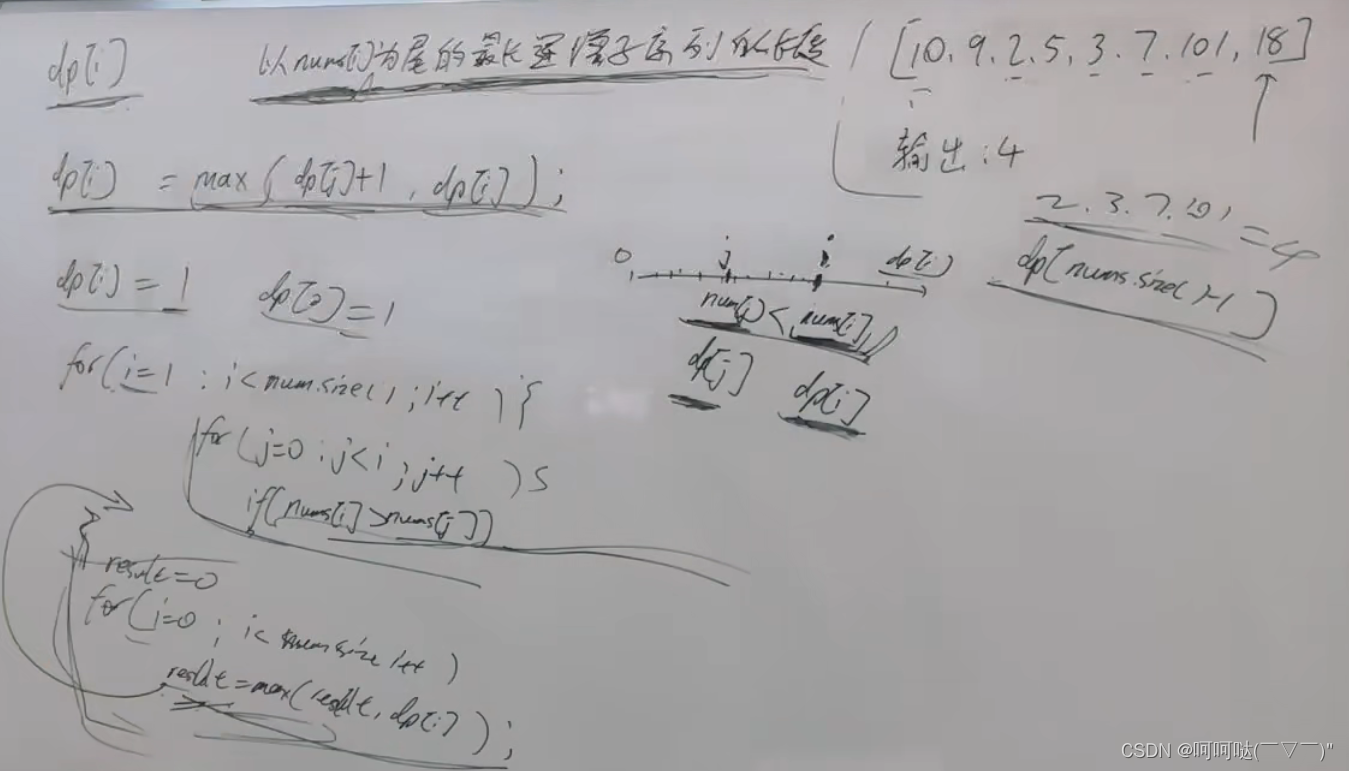 dp[i] 以nums[i]为尾的最长递增子序列的长度
[10.9.2.5.3.7.101,18]
输出:4
dp[i] = max(dp[j]+1, dp[i]);
2.3.7.101 = 4
dp[nums.size()-1]
0 j i dp[i]
nums[j] < nums[i]
dp[j] dp[i]
dp[i] = 1 dp[0] = 1
for(i=1; i<nums.size(); i++){
for(j=0; j<i; j++){
if(nums[i]>nums[j])
}
result=0
for(i=0; i<nums.size i++)
result=max(result, dp[i]);
CSDN @呵呵哒(￣▽￣)"